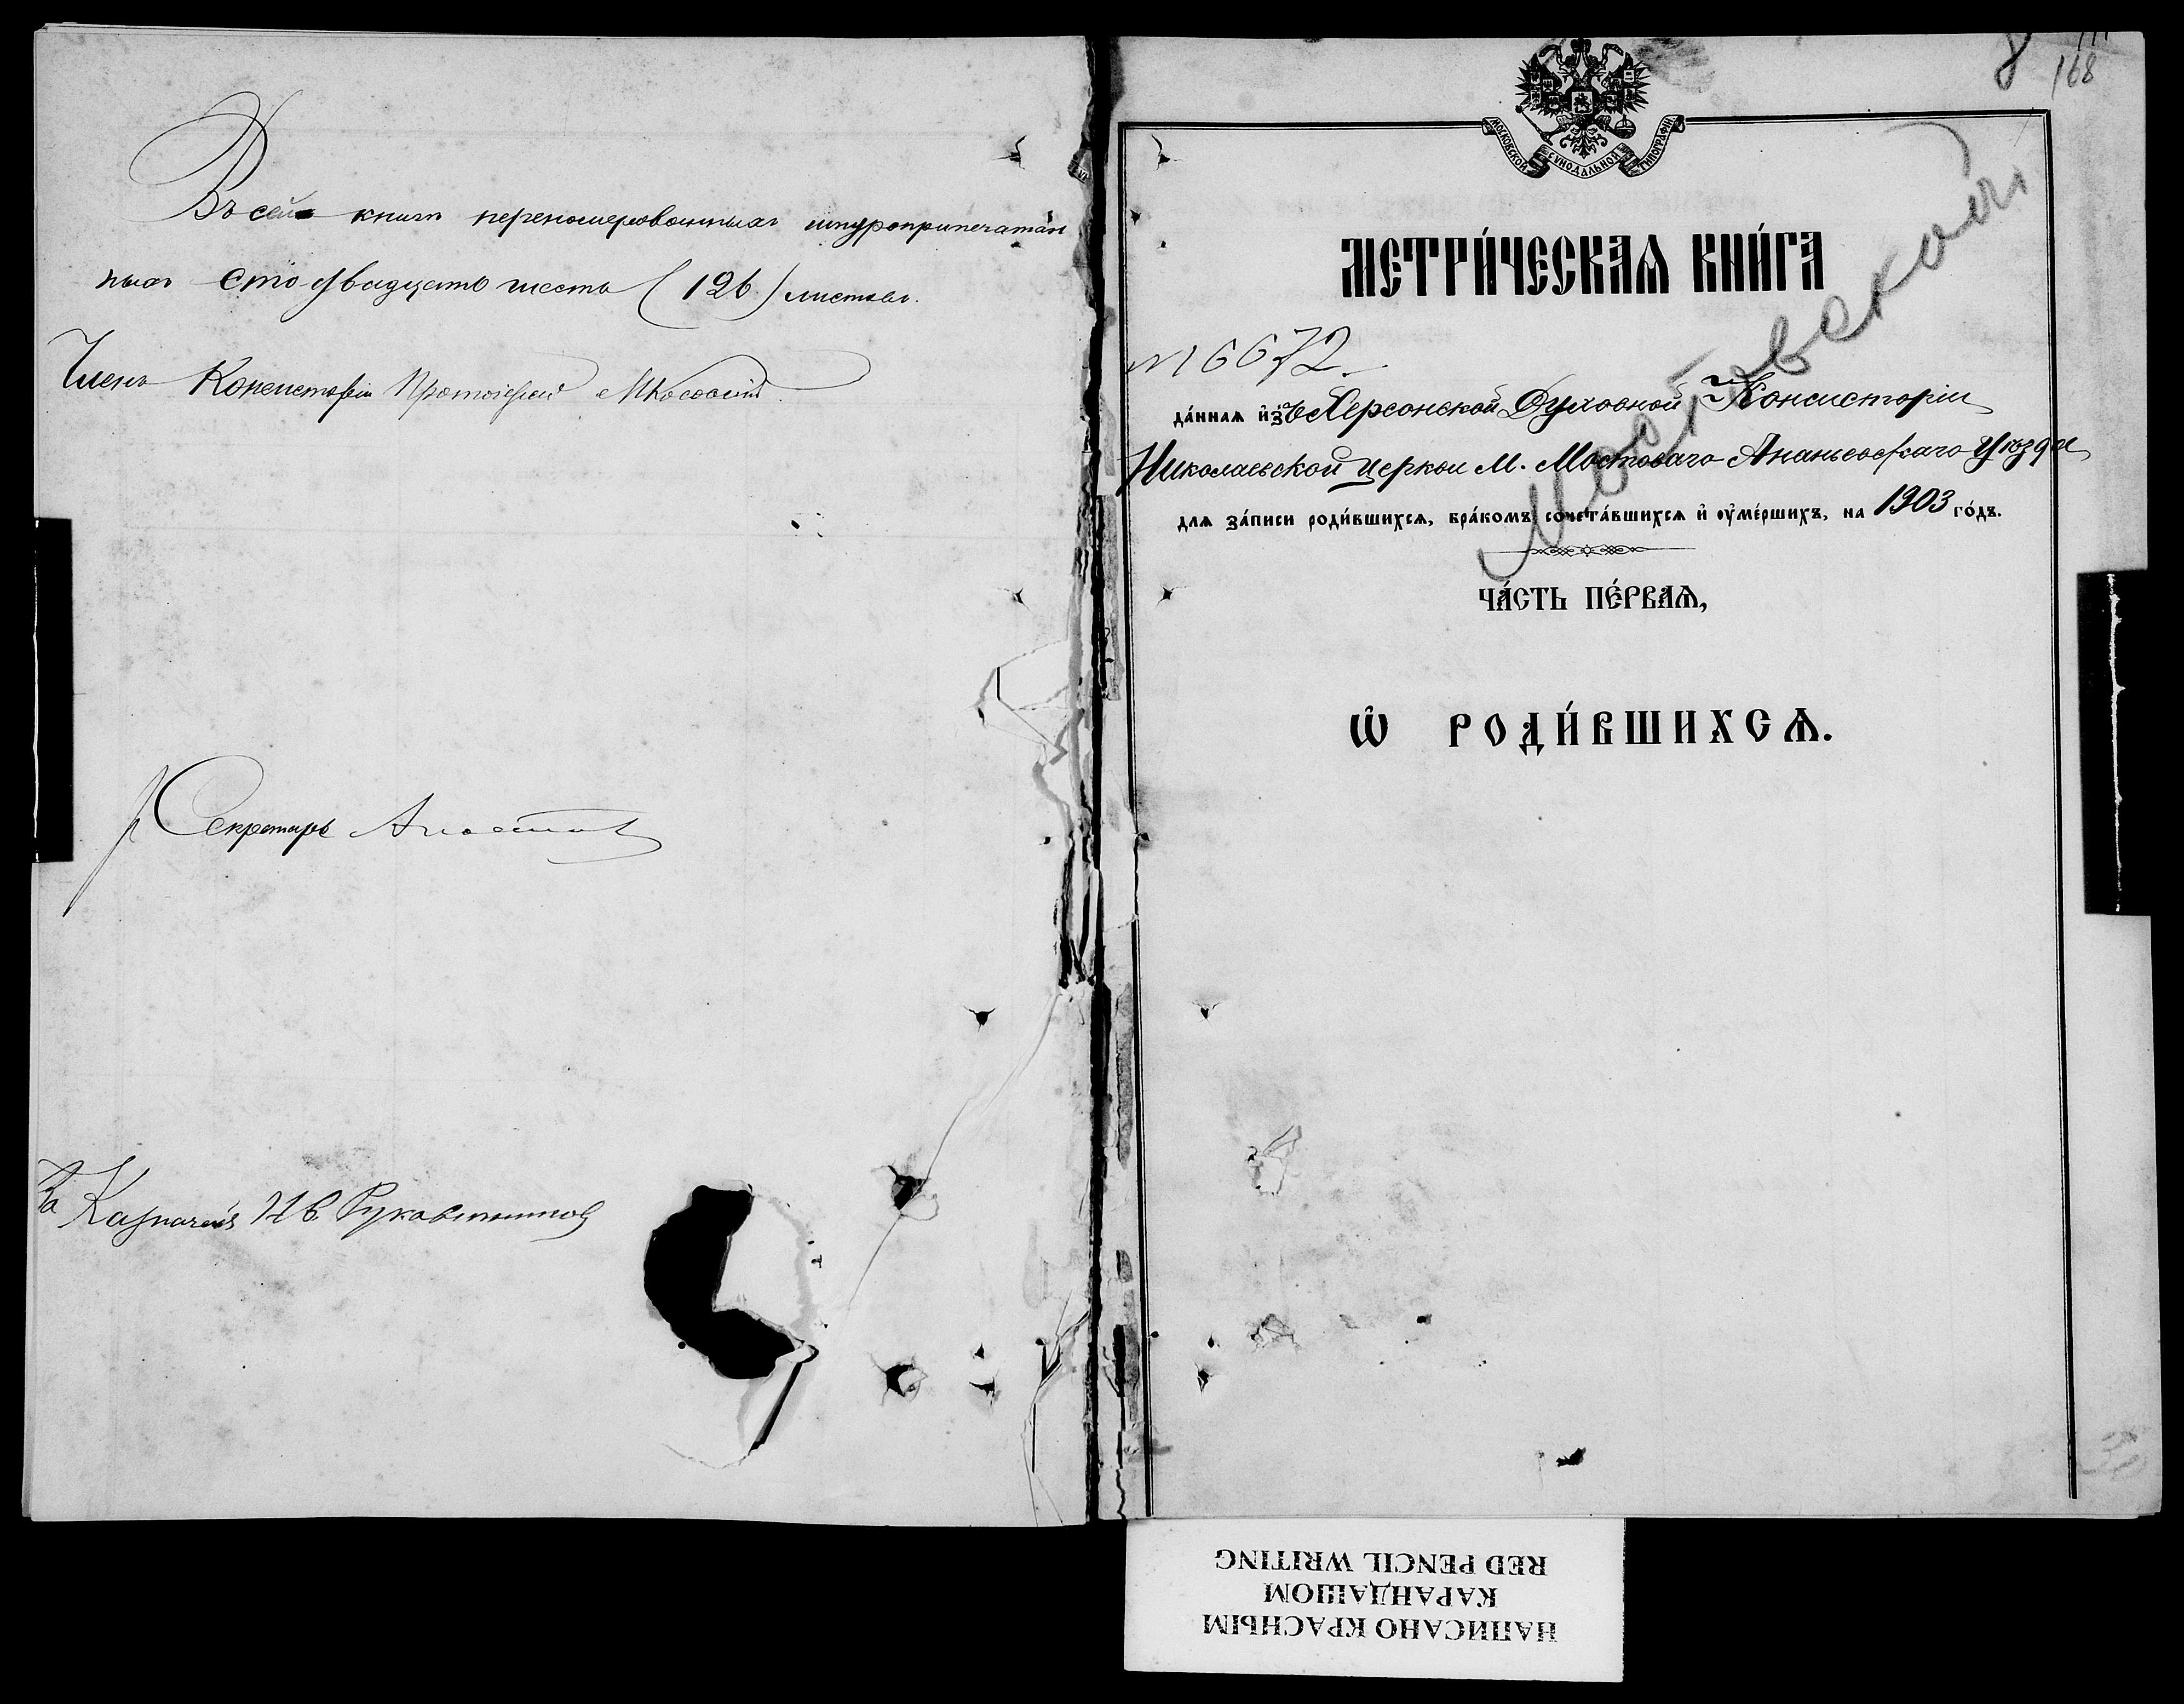 Въ сей книгѣ перенумерованныхъ шнуроприпечатан
ныхъ сто двадцать шесть (126) листовъ.
Членъ Консисторіи Протоіерей
Секретарь
За Казначея Ив. Рукавишниковъ
168
МОСКОВСКОЙ СѴНОДАЛЬНОЙ ТИПОГРАФІИ
МЕТРИ́ЧЕСКАѦ КНИ́ГА
№ 6672
да́ннаѧ и҆зъ Херсонской Духовной Консисторіи
Николаевской церкви м. Мостоваго Ананьевскаго уѣзда
длѧ за́писи роди́вшихсѧ, бра́комъ сочета́вшихсѧ и҆ оу҆ме́ршихъ, на 1903 го́дъ.
Мостовской
ЧА́СТЬ ПЕ́РВАѦ,
Ѡ҆ РОДИ́ВШИХСѦ.
НАПИСАНО КРАСНЫМ
КАРАНДАШОМ
RED PENCIL WRITING